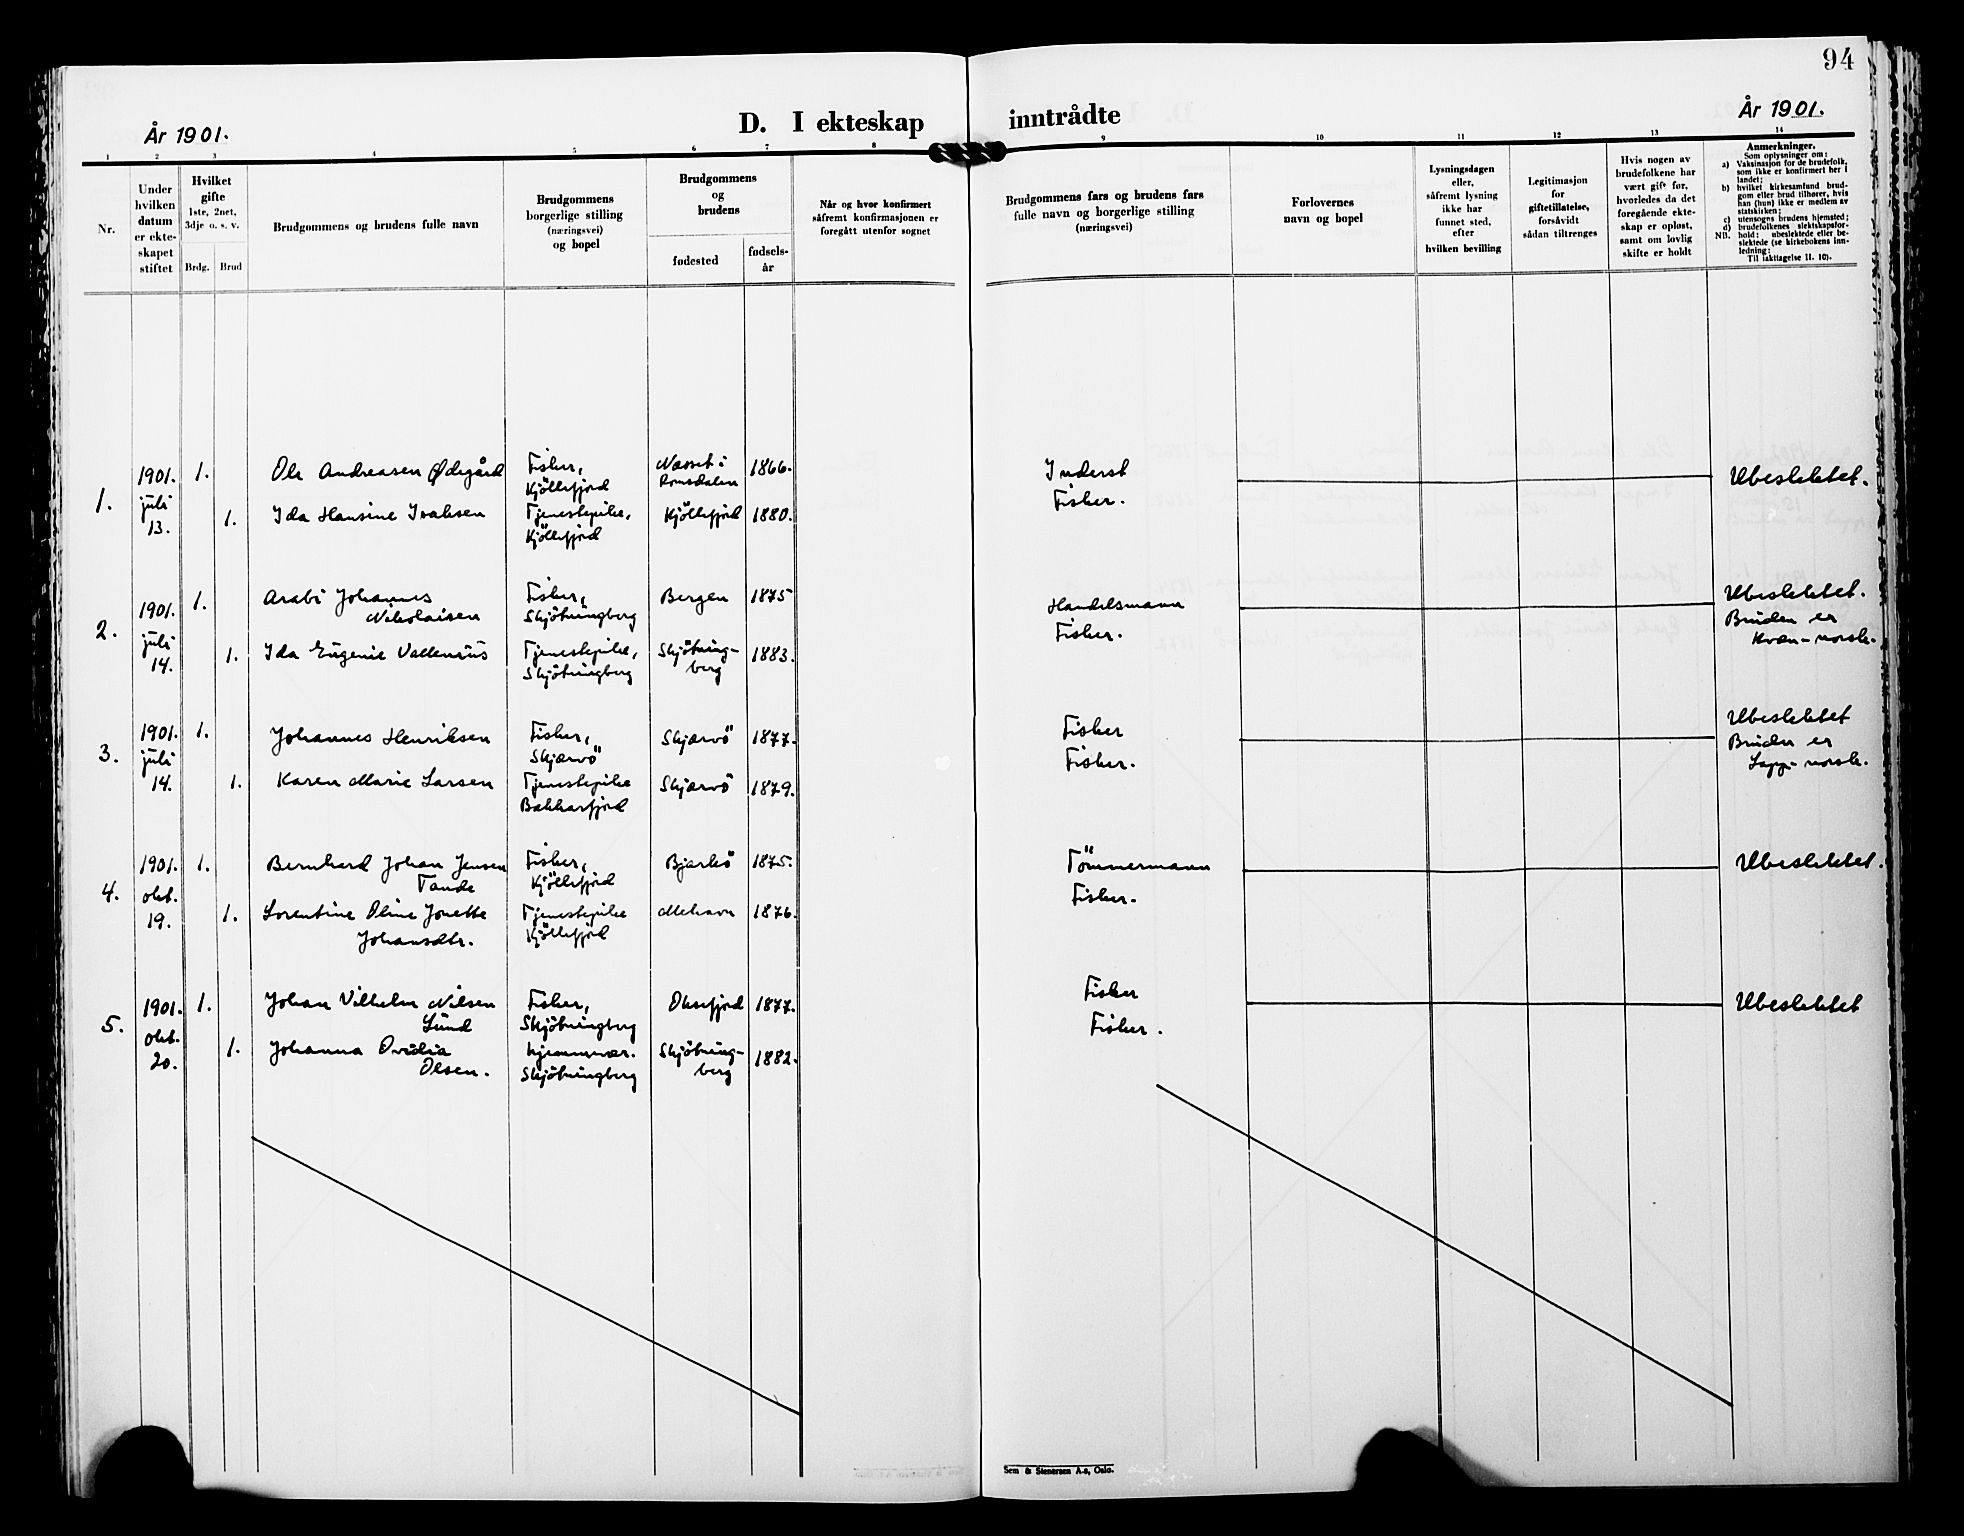 94
År 1901.
D. I ekteskap inntrådte
År 1901.
1 2 3 4 5 6 7 8 9 10 11 12 13 14
Nr.
Under
hvilken
datum
er ekte-
skapet
stiftet
Hvilket
gifte
1ste, 2net,
3dje o. s. v.
Brdg. Brud
Brudgommens og brudens fulle navn
Brudgommens
borgerlige stilling
(næringsvei)
og bopel
Brudgommens
og
brudens
fødested
fødsels-
år
Når og hvor konfirmert
såfremt konfirmasjonen er
foregått utenfor sognet
Brudgommens fars og brudens fars
fulle navn og borgerlige stilling
(næringsvei)
Forlovernes
navn og bopel
Lysningsdagen
eller,
såfremt lysning
ikke har
funnet sted,
efter
hvilken bevilling
Legitimasjon
for
giftetillatelse,
forsåvidt
sådan tiltrenges
Hvis nogen av
brudefolkene har
vært gift før,
hvorledes da det
foregående ekte-
skap er opløst,
samt om lovlig
skifte er holdt
Anmerkninger.
Som oplysninger om:
a) Vaksinasjon for de brudefolk,
som ikke er konfirmert her i
landet;
b) hvilket kirkesamfund brud-
gom eller brud tilhører, hvis
han (hun) ikke er medlem av
statskirken;
c) utensogns brudens hjemsted;
d) brudefolkenes slektskapsfor-
NB. hold: ubeslektede eller be-
slektede (se kirkebokens inn-
ledning:
Til iakttagelse II. 10).
1.
1901.
juli
13.
1.
Ole Andreasen Ødegård
Fisker,
Kjöllefjord
Nesset i
Romsdalen
1866.
Inderst
Ubeslektet.
1.
Ida Hansine Isaksen
Tjenestepike,
Kjöllefjord
Kjöllefjord
1880.
Fisker.
2.
1901.
juli
14.
1.
Arabi Johannes
Nikolaisen
Fisker,
Skjötningberg
Bergen
1875
Handelsmann
Ubeslektet.
Bruden er
kvæn-norsk.
1.
Ida Eugenie Vallenius
Tjenestepike,
Skjötningberg
Skjötning-
berg
1883.
Fisker.
3.
1901.
juli
14.
1.
Johannes Henriksen
Fisker,
Skjærvö
Skjærvö
1877.
Fisker
Ubeslektet
Bruden er
Lapp-norsk.
1.
Karen Marie Larsen
Tjenestepike
Bakkarfjord
Skjærvö
1879.
Fisker.
4.
1901.
okt.
19.
1.
Bernhard Johan Jensen
Tande
Fisker,
Kjöllefjord
Bjarkö
1875.
Tömmermann
Ubeslektet.
1.
Lorentine Oline Jonette
Johansdtr.
Tjenestepike
Kjöllefjord
Mehavn
1876.
Fisker.
5.
1901.
okt.
20.
1.
Johan Vilhelm Nilsen
Lund
Fisker,
Skjötningberg
Oksefjord
1877.
Fisker
Ubeslektet
1.
Johanna Ovidia
Olsen.
hjemmevær.
Skjötningberg
Skjötning-
berg
1882.
Fisker.
Sem & Stenersen A-s, Oslo.